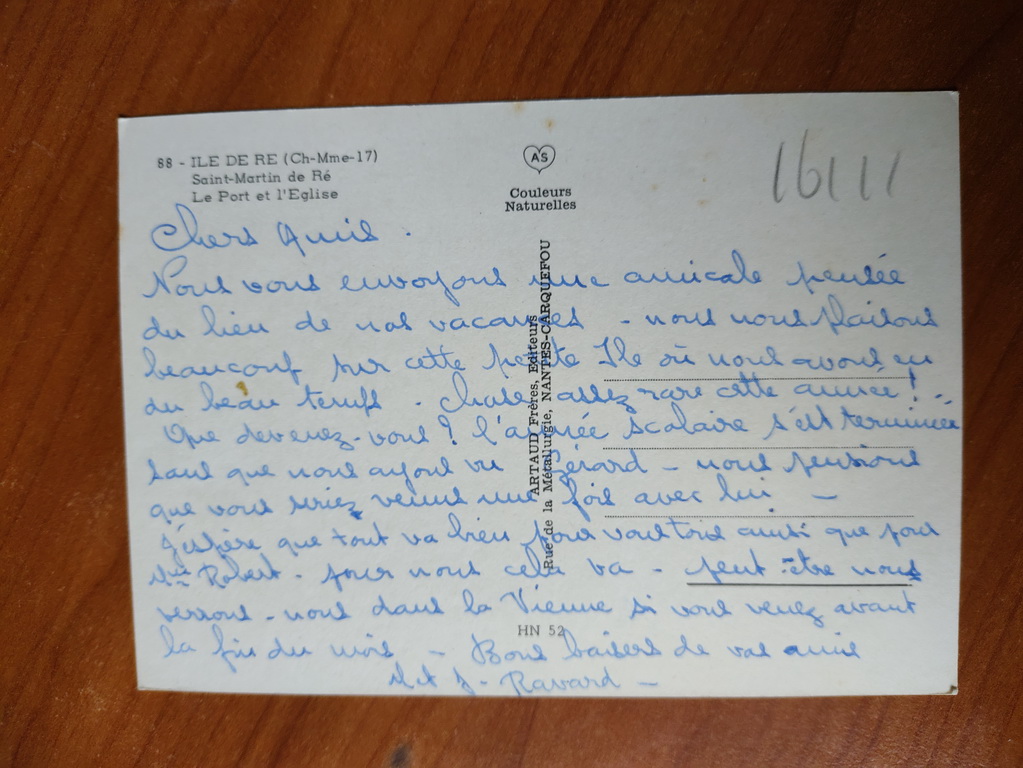 88 - ILE DE RE (Ch-Mme-17)
Saint-Martin de Ré
Le Port et l'Eglise
AS
Couleurs
Naturelles
16111
ARTAUD Frères, Editeurs
Rue de la Métallurgie, NANTES-CARQUEFOU
HN 52
Chers Amis.
Nous vous envoyons une amicale pensée
du lieu de nos vacances - nous nous plaisons
beaucoup sur cette petite Ile où nous avons eu
du beau temps. Chose assez rare cette année!..
Que devenez-vous? l'année scolaire s'est terminée
sans que nous ayons vu Gérard - nous pensions
que vous seriez venus une fois avec lui -
J'espère que tout va bien pour vous tous ainsi que pour
Mme Robert. pour nous cela va - peut être nous
verrons-nous dans la Vienne si vous venez avant
la fin du mois - Bons baisers de vos amis
M et J - Ravard -